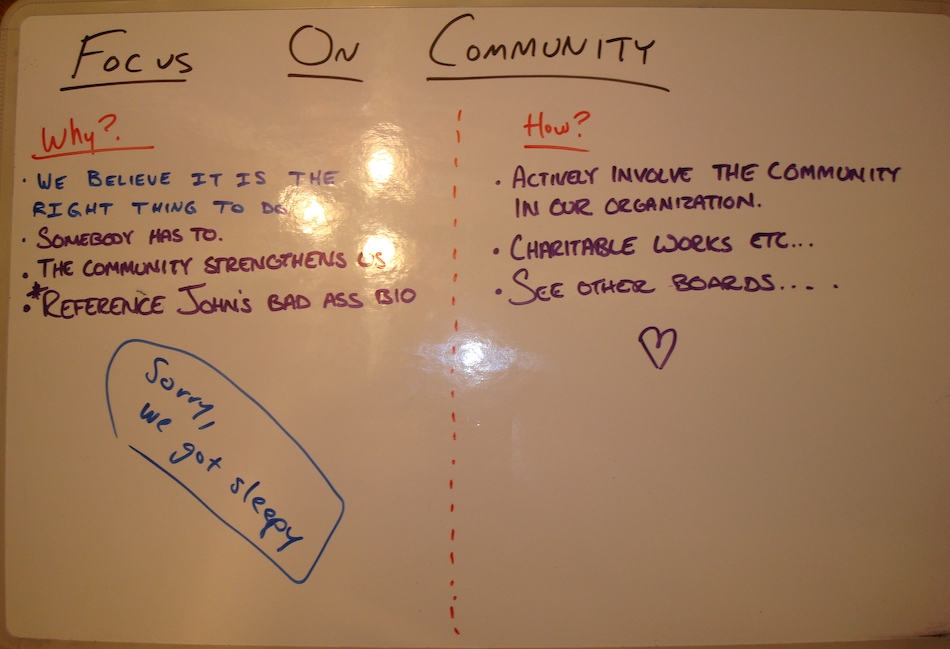 Focus On Community
Why?
· We believe it is the
right thing to do
· Somebody has to.
· The community strengthens us
·* Reference John's bad ass bio
Sorry,
we got sleepy
How?
· Actively involve the community
in our organization.
· Charitable works etc...
· See other boards.....